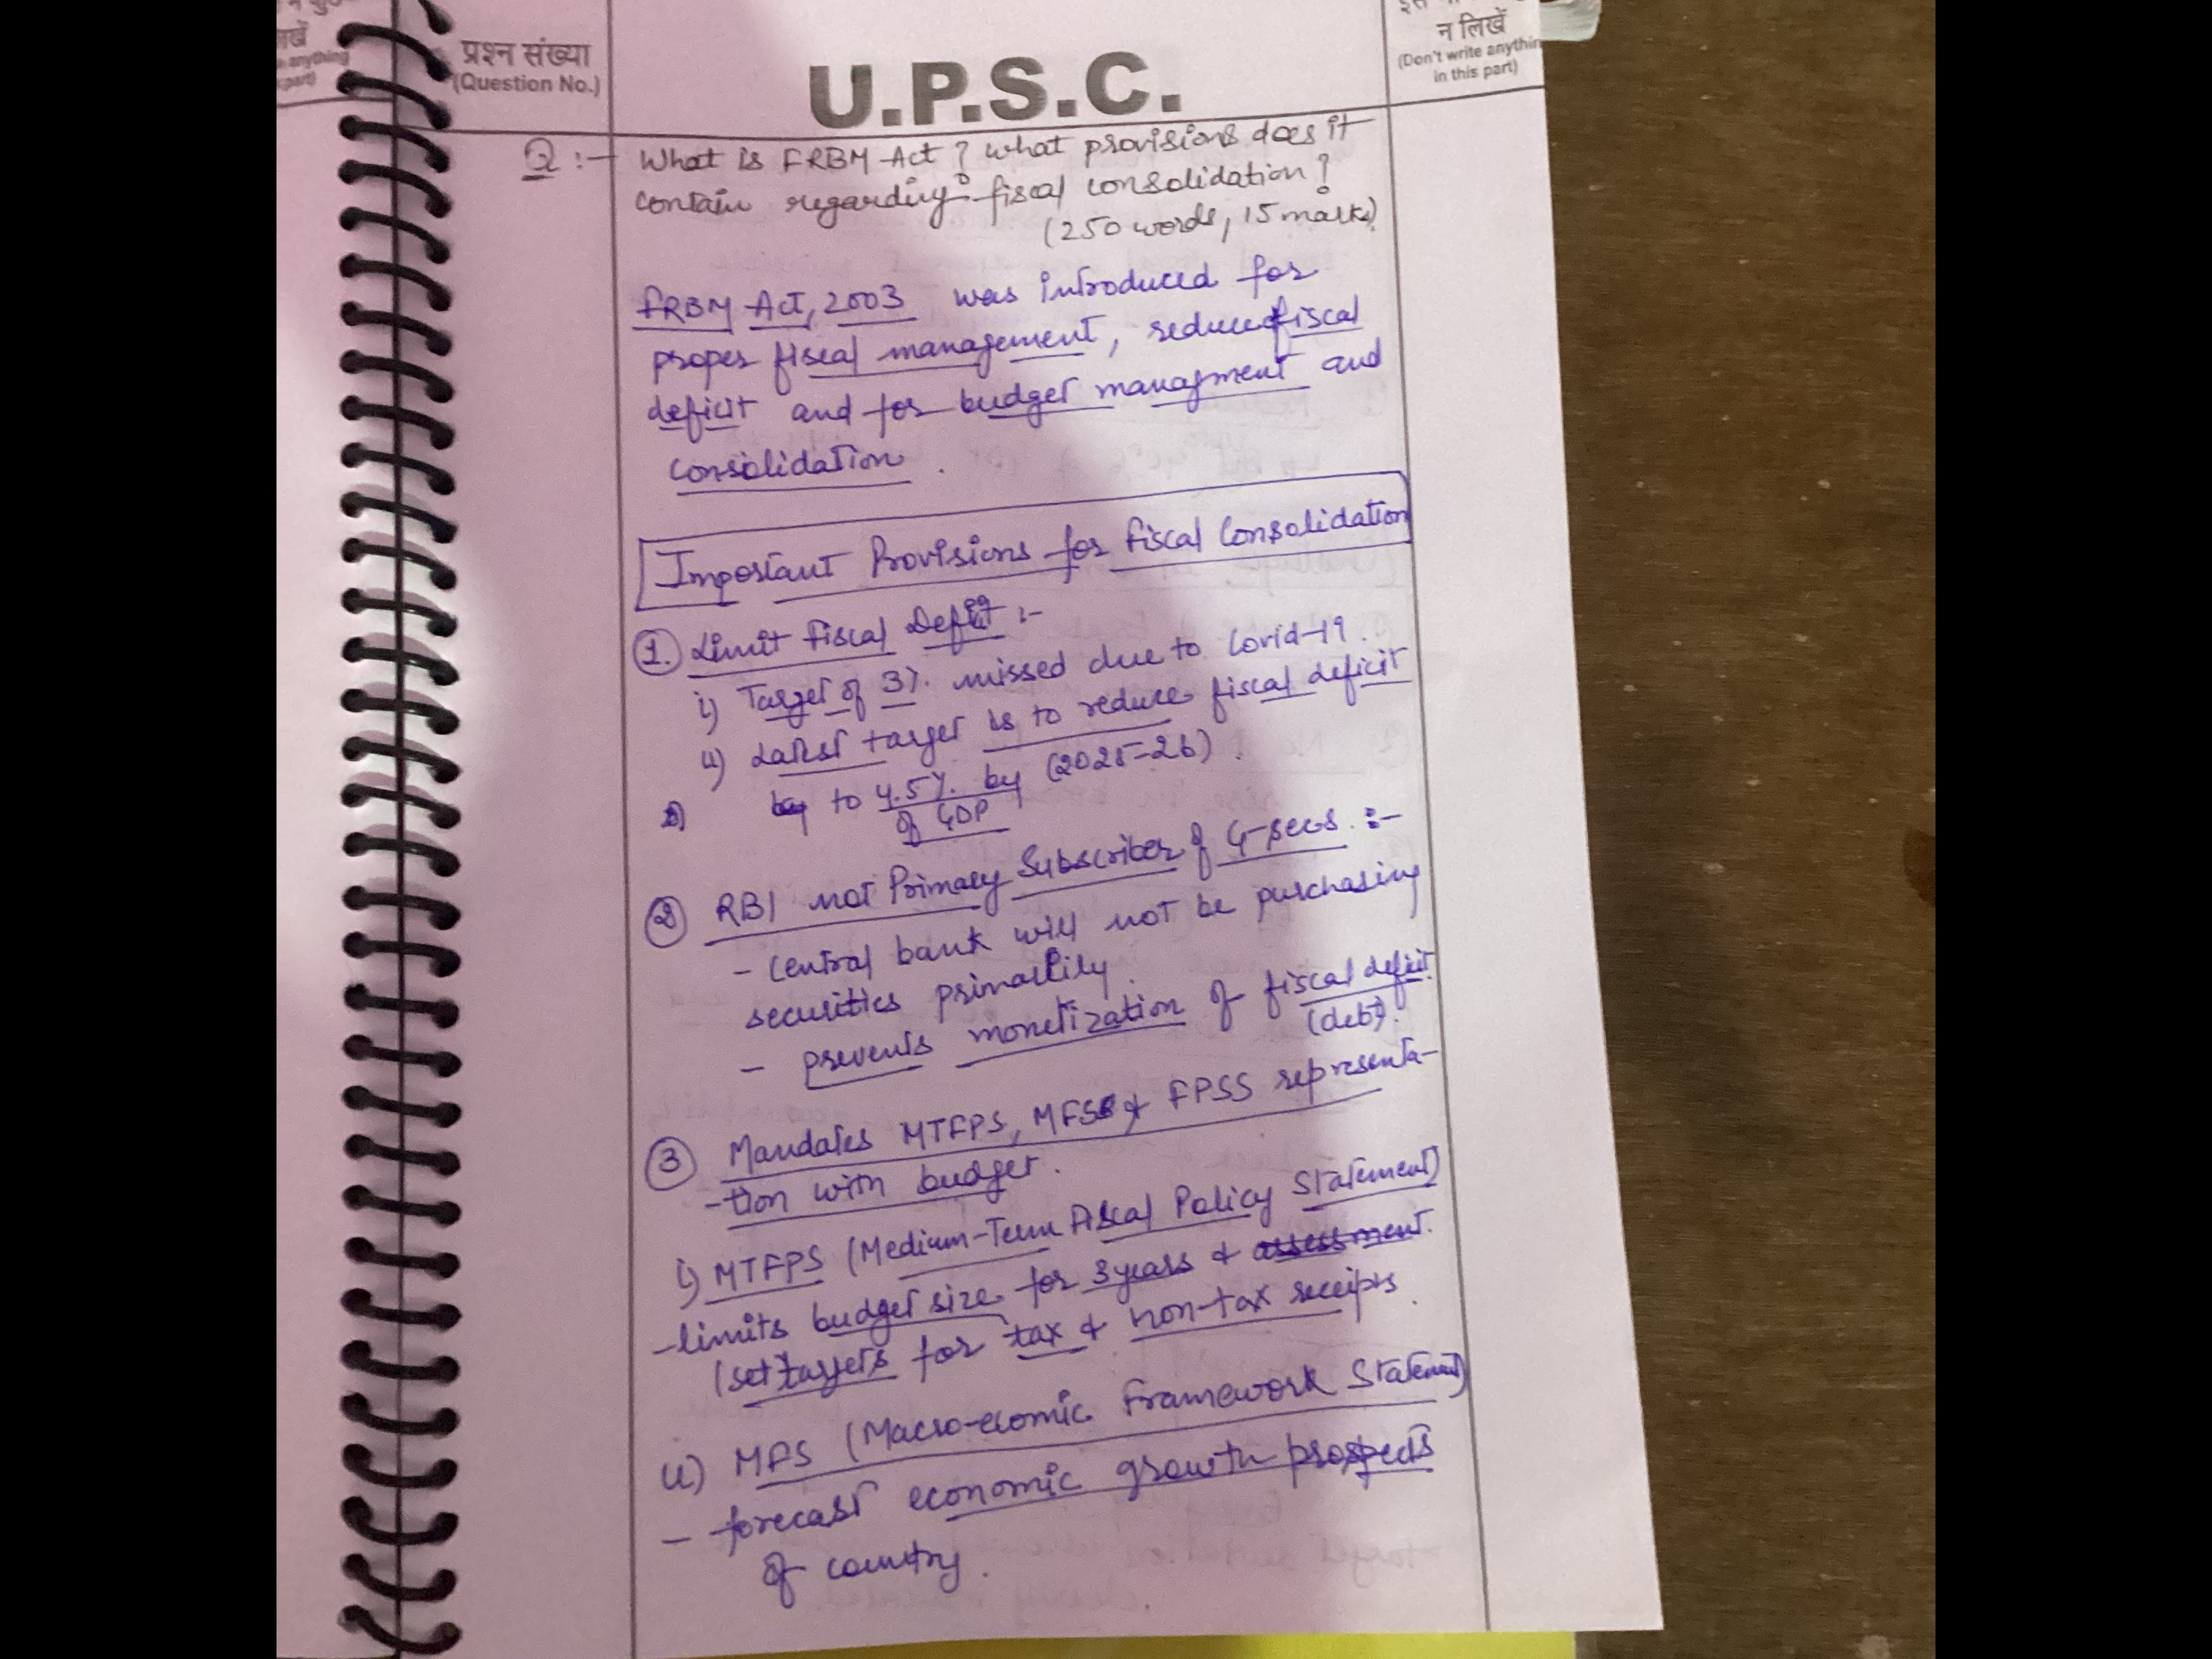 प्रश्न संख्या
(Question No.)
U.P.S.C.
न लिखें
(Don't write anything
in this part)
Q :- What is FRBM Act? What provisions does it
contain regarding fiscal consolidation?
(250 words, 15 marks)
FRBM Act, 2003 was introduced for
proper fiscal management, reduce fiscal
deficit and for budget managment and
consolidation.
Important Provisions for Fiscal Consolidation
1. Limit Fiscal Deficit :-
i) Target of 3% missed due to Covid-19.
ii) Latest target is to reduce fiscal deficit
to 4.5% by (2025-26).
of GDP
2 RBI not Primary Subscriber of G-secs. :-
- Central bank will not be purchasing
securities primarily.
- prevents monetization of fiscal deficit
(debt).
3 Mandates MTFPS, MFS & FPSS representa-
-tion with budget.
i) MTFPS (Medium-Term Fiscal Policy Statement)
-limits budget size for 3 years & assessment.
(set targets for tax & non-tax receipts.
ii) MFS (Macro-ecomic Framework Statement)
- forecast economic growth prospects
of country.